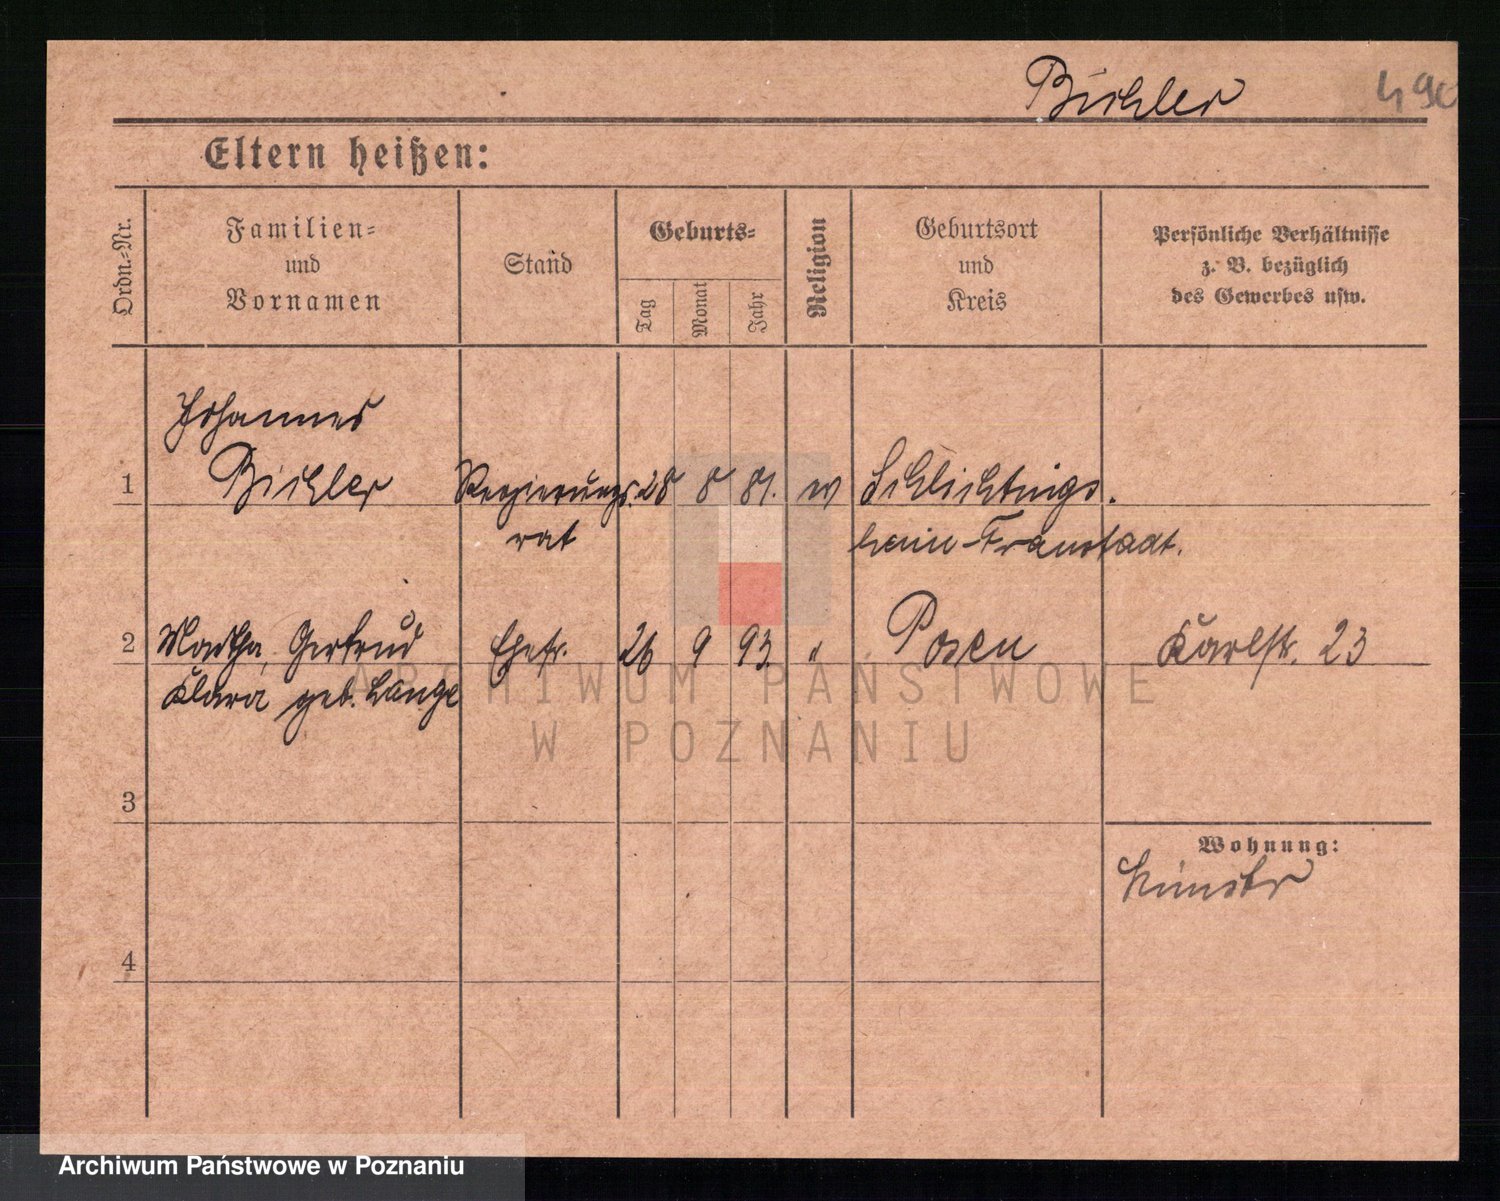 Büchler 490
Eltern heißen:
Ordn.-Nr.
Familien-
und
Vornamen
Stand
Geburts-
Tag
Monat
Jahr
Religion
Geburtsort
und
Kreis
Persönliche Verhältnisse
z. B. bezüglich
des Gewerbes usw.
Johannes
1 Büchler Regierungs. 28 8 81. ev Schlichtings.
rat heim-Fraustadt.
2 Martha, Gertrud Ehefr. 26 9 93. " Posen Karlstr. 23
Klara geb. Lange
ARCHIWUM PAŃSTWOWE
W POZNANIU
3
Wohnung:
Münster
4
Archiwum Państwowe w Poznaniu